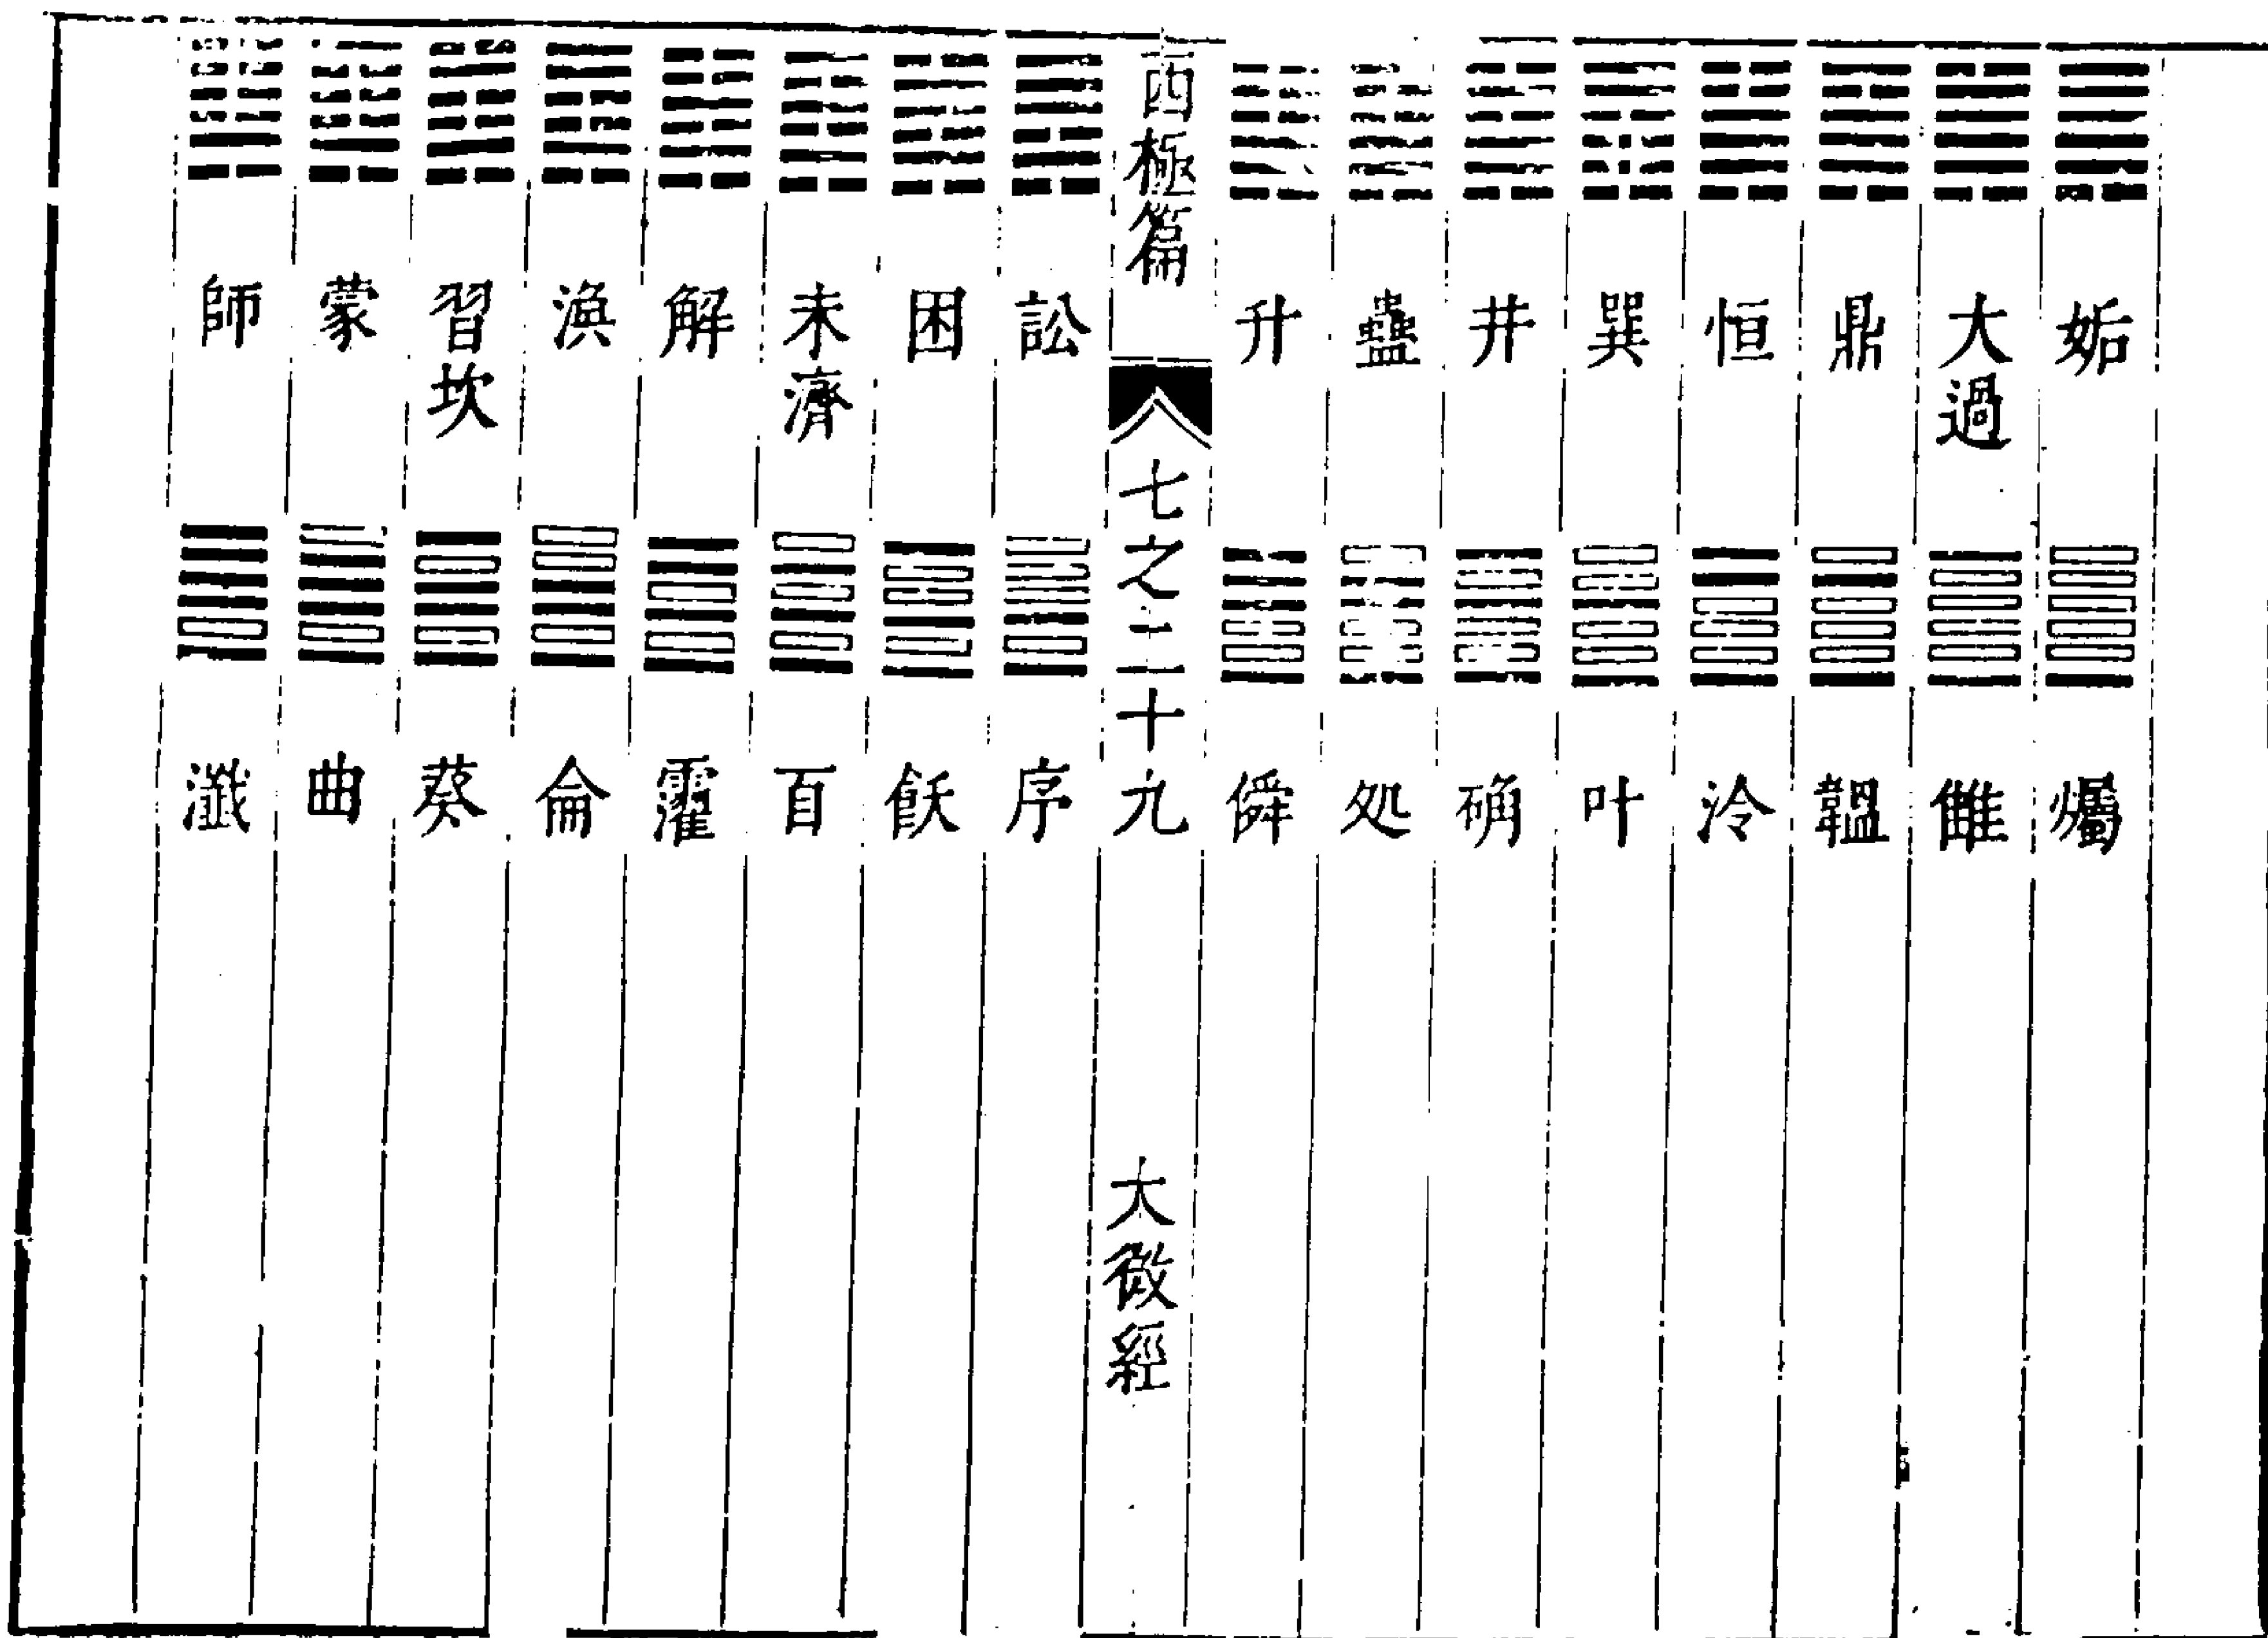 姤
爥
大過
雔
鼎
韞
恒
泠
巽
叶
井
确
蠱
処
升
僢
西極篇
七之二十九
大微經
訟
序
困
飫
未濟
百
解
靃
渙
侖
習坎
葵
蒙
曲
師
瀐